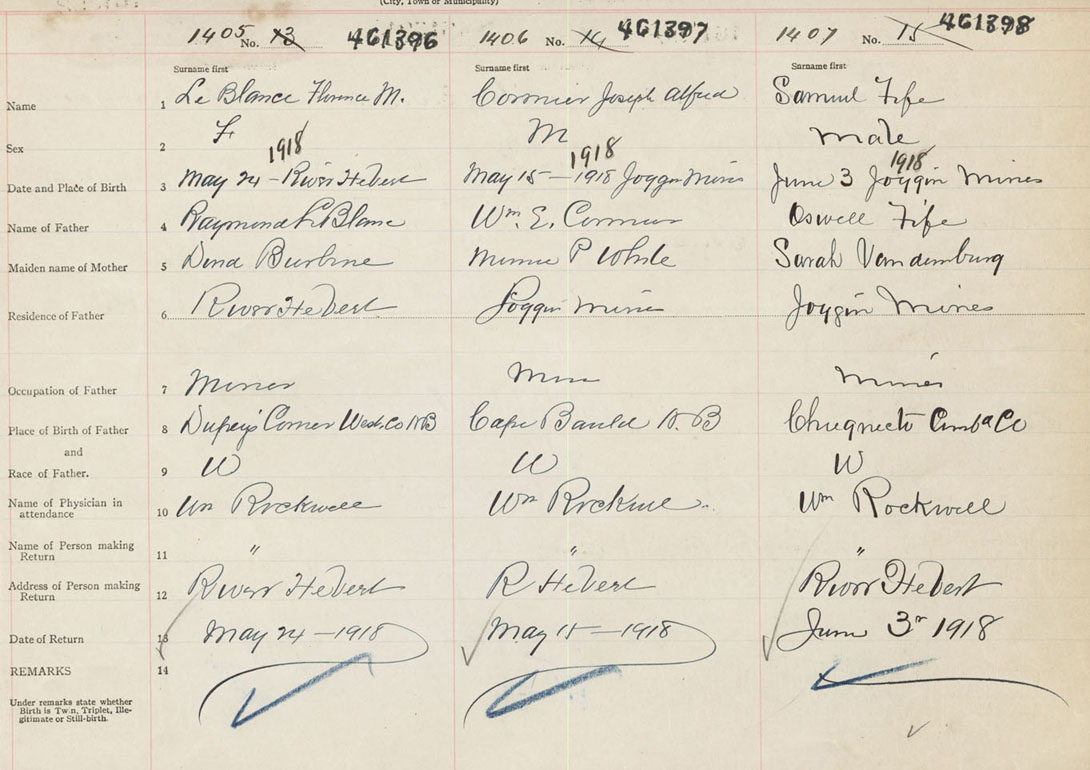 (City, Town or Municipality)
1405 No. 13 461396 1406 No. 14 461397 1407 No. 15 461398
Surname first Surname first Surname first
Name 1 Le Blance Florence M. Cormier Joseph Alfred Samuel Fife
Sex 2 F M Male
1918 1918 1918
Date and Place of Birth 3 May 24 - River Hebert May 15 - 1918 Joggin Mines June 3 Joggin Mines
Name of Father 4 Raymond LeBlanc Wm. E. Cormier Oswell Fife
Maiden name of Mother 5 Burbine Minnie P White Sarah Vandemburg
Residence of Father 6 River Hebert Joggin Mines Joggin Mines
Occupation of Father 7 Miner Miner
Place of Birth of Father 8 Dupey's Corner West. Co N B Cape Bauld N. B Chignecto Cumb Co
and
Race of Father. 9 W W W
Name of Physician in
attendance 10 Wm Rockwell Wm Rockwell Wm Rockwell
Name of Person making
Return 11 " " "
Address of Person making
Return 12 River Hebert R Hebert River Hebert
Date of Return 13 May 24 - 1918 May 15 - 1918 June 3 1918
REMARKS 14
Under remarks state whether
Birth is Twin, Triplet, Ille-
gitimate or Still-birth.